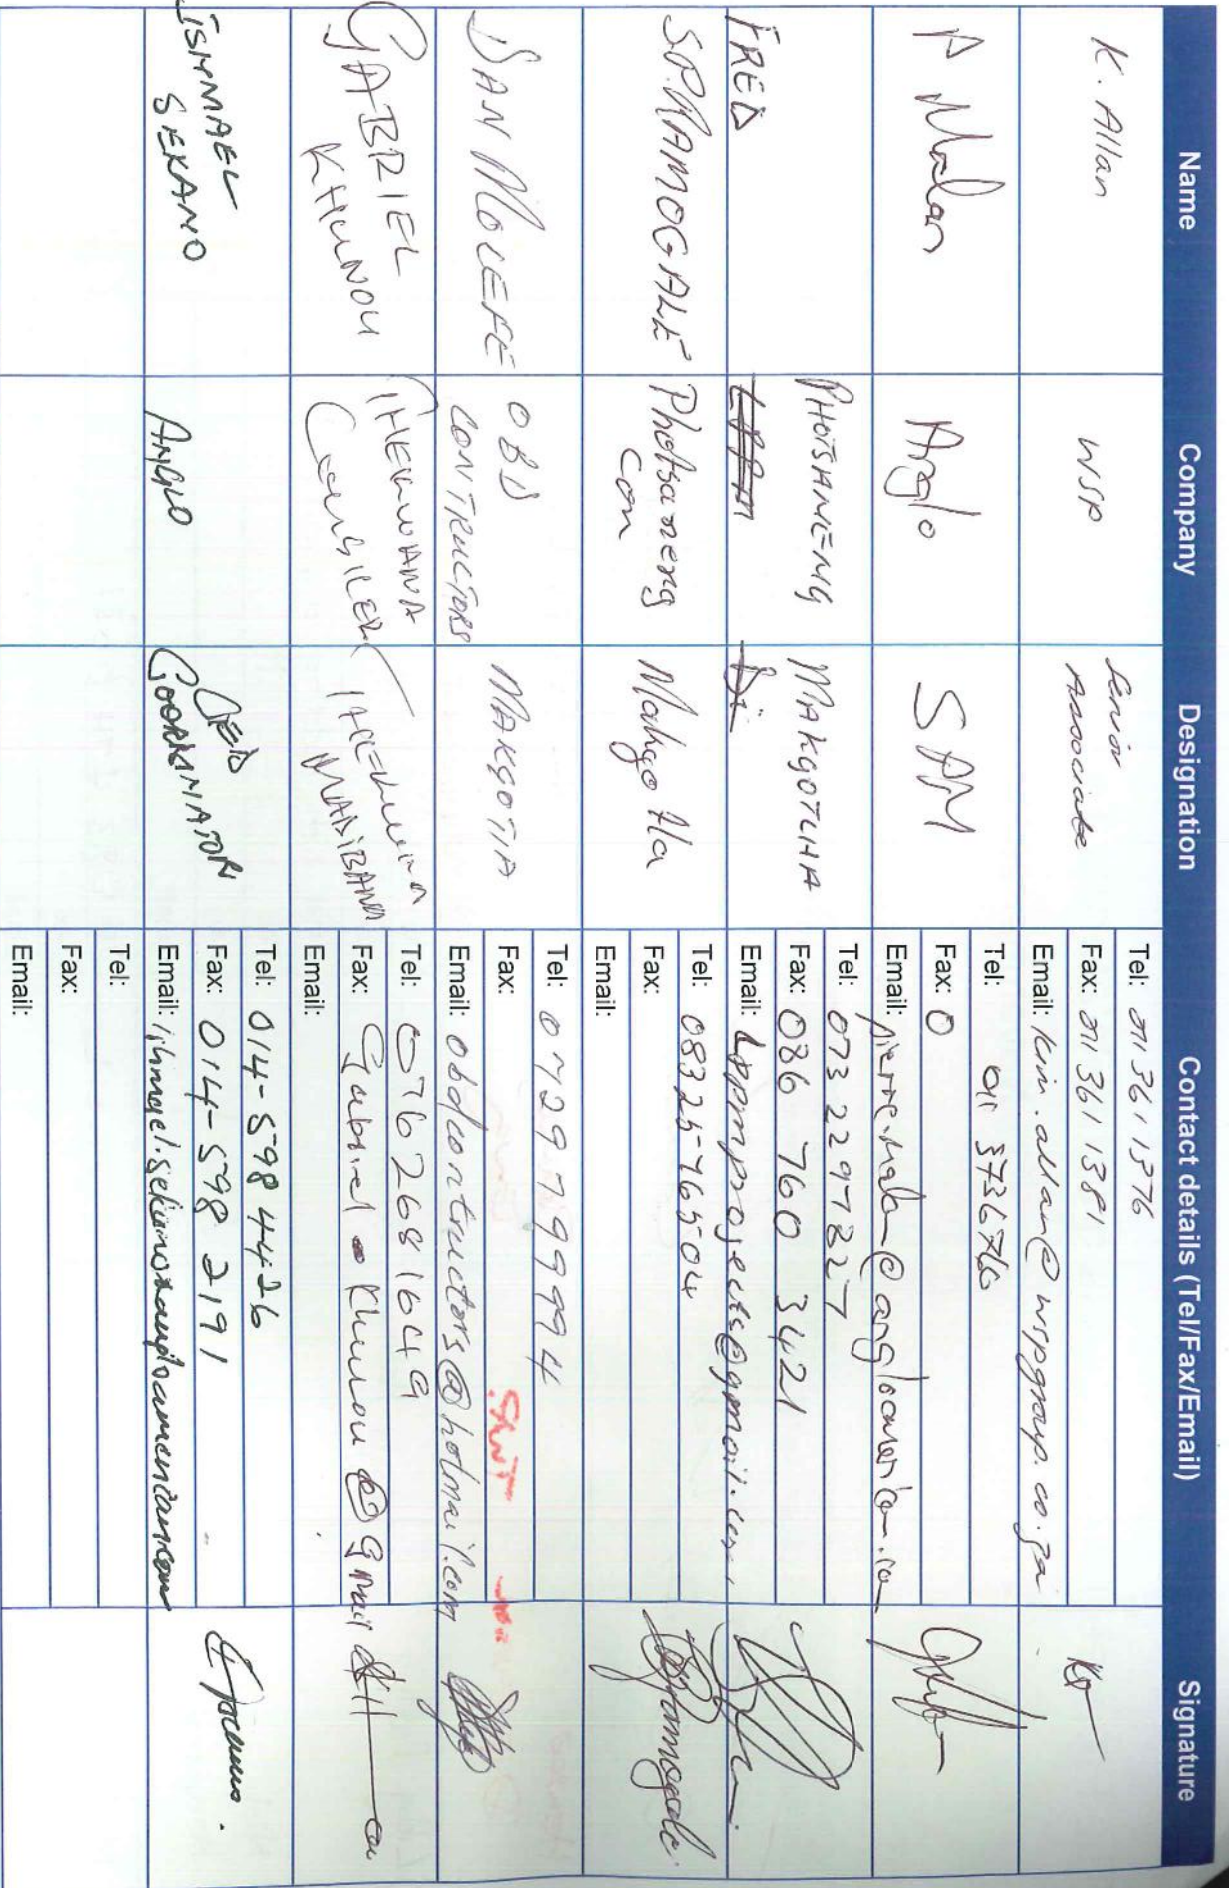 Name Company Designation Contact details (Tel/Fax/Email) Signature
K. Allan
WSP
Senior
Associate
Tel: 011 361 1376
Fax: 011 361 1381
Email: kim.allan@wspgroup.co.za
P Malan
Anglo
SAM
Tel: 011 3736716
Fax: 0
Email: pierre.malan@angloamerican.com
FRED
PHOTSHANENG
MAKGOTLHA
Tel: 073 2297827
Fax: 086 760 3421
Email: lppmprojects@gmail.com
S.P. RAMOGALE
Photsaneng
Com
Makgotla
Tel: 0832576504
Fax:
Email:
Ramogale
SAN MOLEFE
OBD
CONTRUCTORS
MAKGOTIA
Tel: 0729799994
Fax:
SENT
Email: obdcontructors@hotmail.com
GABRIEL
KHUNOU
THEKWANA
MADIBANA
Tel: 0762681649
Fax: Gabriel.Khunou@gmail
Email:
ISHMAEL
SEKANO
ANGLO
COORDINATOR
Tel: 014-598 4426
Fax: 014-598 2191
Email:
Tel:
Fax:
Email: